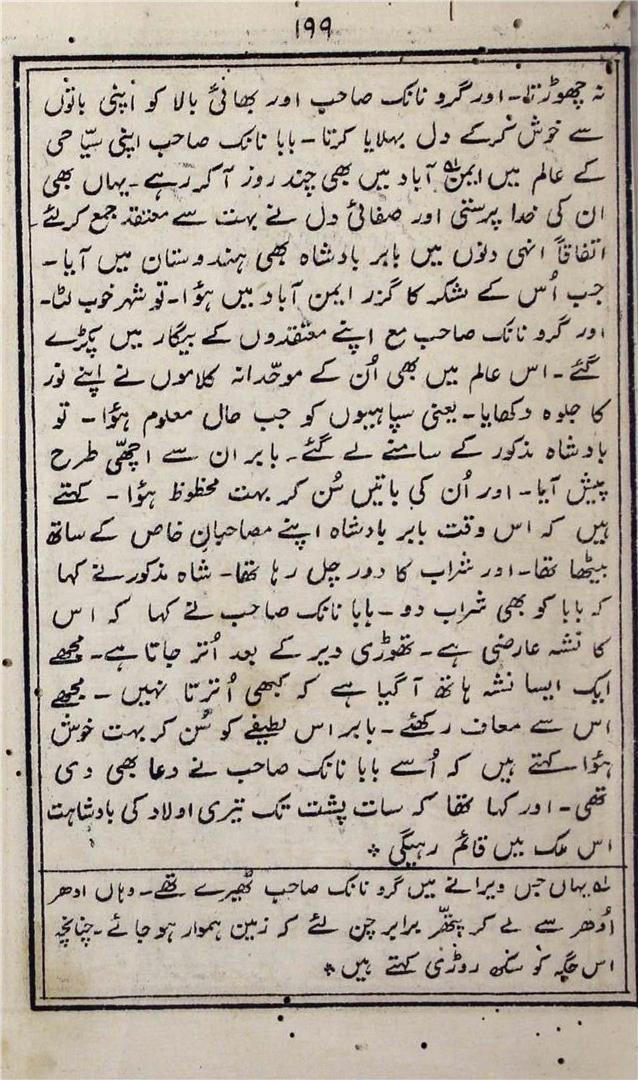 ۱۹۹
نہ چھوڑتا۔ اور گرو نانک صاحب اور بھائی بالا کو اپنی باتوں
سے خوش کرکے دل بہلایا کرتا۔ بابا نانک صاحب اپنی سیّاحی
کے عالم میں ایمن لہ آباد میں بھی چند روز آ کر رہے۔ یہاں بھی
ان کی خدا پرستی اور صفائی دل نے بہت سے معتقد جمع کر لئے۔
اتفاقاً انہی دنوں میں بابر بادشاہ بھی ہندوستان میں آیا۔
جب اُس کے لشکر کا گزر ایمن آباد میں ہؤا۔ تو شہر خوب لٹا۔
اور گرو نانک صاحب مع اپنے معتقدوں کے بیگار میں پکڑے
گئے۔ اس عالم میں بھی اُن کے موحّدانہ کلاموں نے اپنے نور
کا جلوہ دکھایا۔ یعنی سپاہیوں کو جب حال معلوم ہؤا۔ تو
بادشاہ مذکور کے سامنے لے گئے۔ بابر ان سے اچھّی طرح
پیش آیا۔ اور اُن کی باتیں سُن کر بہت محظوظ ہؤا۔ کہتے
ہیں کہ اس وقت بابر بادشاہ اپنے مصاحبانِ خاص کے ساتھ
بیٹھا تھا۔ اور شراب کا دور چل رہا تھا۔ شاہ مذکور نے کہا
کہ بابا کو بھی شراب دو۔ بابا نانک صاحب نے کہا کہ اس
کا نشہ عارضی ہے۔ تھوڑی دیر کے بعد اُتر جاتا ہے۔ مجھے
ایک ایسا نشہ ہاتھ آ گیا ہے کہ کبھی اُترتا نہیں۔ مجھے
اس سے معاف رکھئے۔ بابر اس لطیفے کو سُن کر بہت خوش
ہؤا۔ کہتے ہیں کہ اُسے بابا نانک صاحب نے دعا بھی دی
تھی۔ اور کہا تھا کہ سات پشت تک تیری اولاد کی بادشاہت
اس ملک میں قائم رہیگی ٭
لہ یہاں جس ویرانے میں گرو نانک صاحب ٹھیرے تھے۔ وہاں ادھر
اُدھر سے لے کر پتھّر برابر چن لئے کہ زمین ہموار ہو جائے۔ چنانچہ
اس جگہ کو سکھ روڑی کہتے ہیں ٭